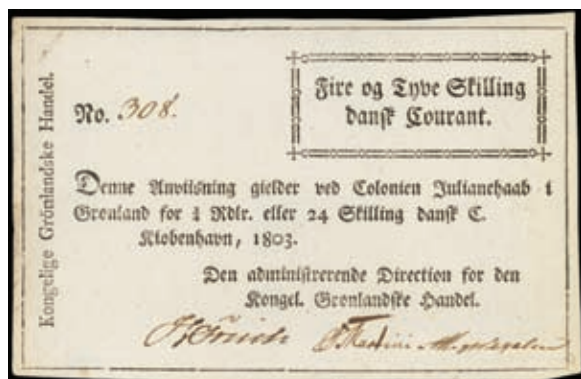 Kongelige Grönlandske Handel.
No. 308.
Fire og Tyve Skilling
dansk Courant.
Denne Anviisning gielder ved Colonien Julianehaab i
Grønland for ¼ Rdlr. eller 24 Skilling dansk C.
Kiøbenhavn, 1803.
Den administrerende Direction for den
Kongel. Grønlandske Handel.